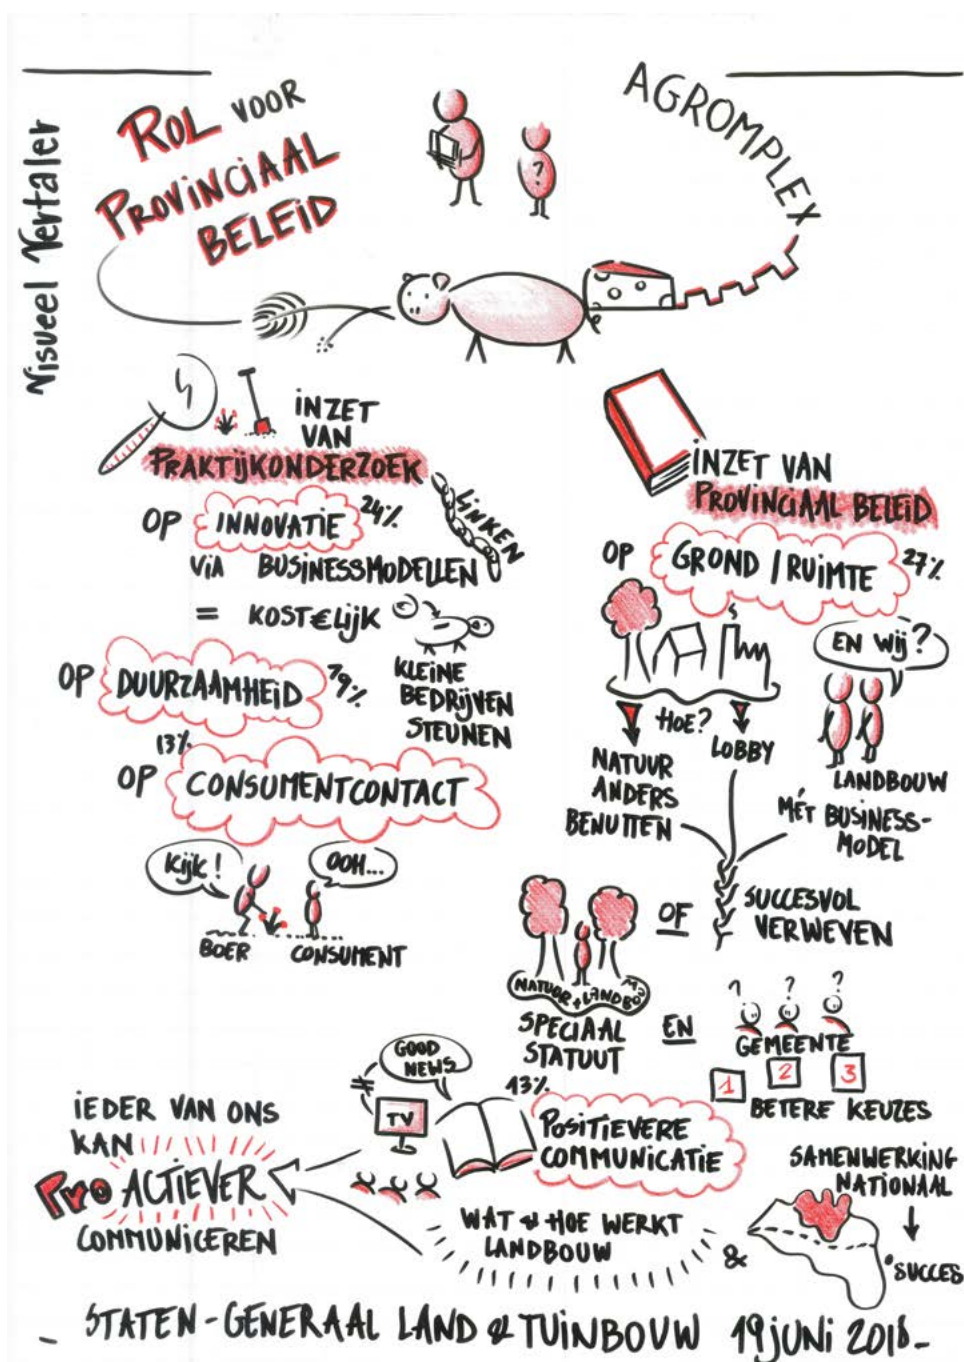 Visueel Vertaler
ROL VOOR
PROVINCIAAL
BELEID
AGROMPLEX
?
INZET
VAN
PRAKTIJKONDERZOEK
OP INNOVATIE 24%
LINKEN
VIA BUSINESSMODELLEN
= KOST€LIJK
KLEINE
BEDRIJVEN
STEUNEN
OP DUURZAAMHEID 19%
13%
OP CONSUMENTCONTACT
KIJK!
OOH...
BOER
CONSUMENT
INZET VAN
PROVINCIAAL BELEID
OP GROND / RUIMTE 27%
EN WIJ?
HOE?
LOBBY
LANDBOUW
NATUUR
ANDERS
BENUTTEN
MÉT BUSINESS-
MODEL
OF
SUCCESVOL
VERWEVEN
NATUUR + LANDBOUW
SPECIAAL
STATUUT
EN
? ? ?
GEMEENTE
1 2 3
BETERE KEUZES
GOOD
NEWS
TV
13%
POSITIEVERE
COMMUNICATIE
IEDER VAN ONS
KAN
Pro ACTIEVER
COMMUNICEREN
WAT & HOE WERKT
LANDBOUW
&
SAMENWERKING
NATIONAAL
SUCCES
STATEN-GENERAAL LAND & TUINBOUW 19 JUNI 2018